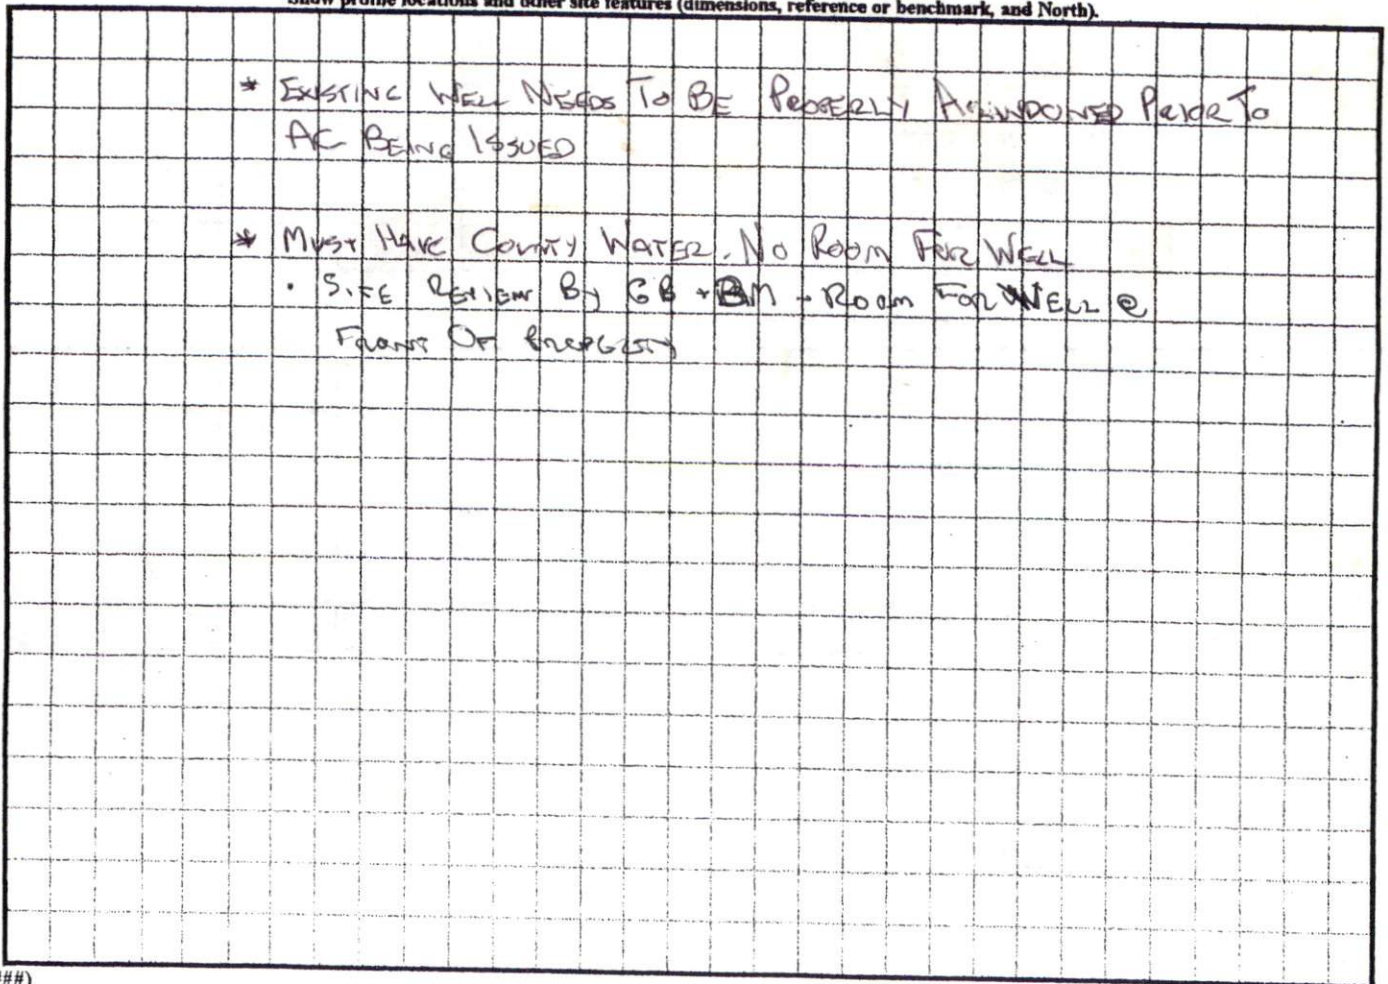 Show profile locations and other site features (dimensions, reference or benchmark, and North).
* EXISTING WELL NEEDS TO BE PROPERLY ABANDONED PRIOR TO
AC BEING ISSUED
* MUST HAVE COUNTY WATER. NO ROOM FOR WELL
• SITE REVIEW BY GB + BM - ROOM FOR WELL @
FRONT OF PROPERTY
##)